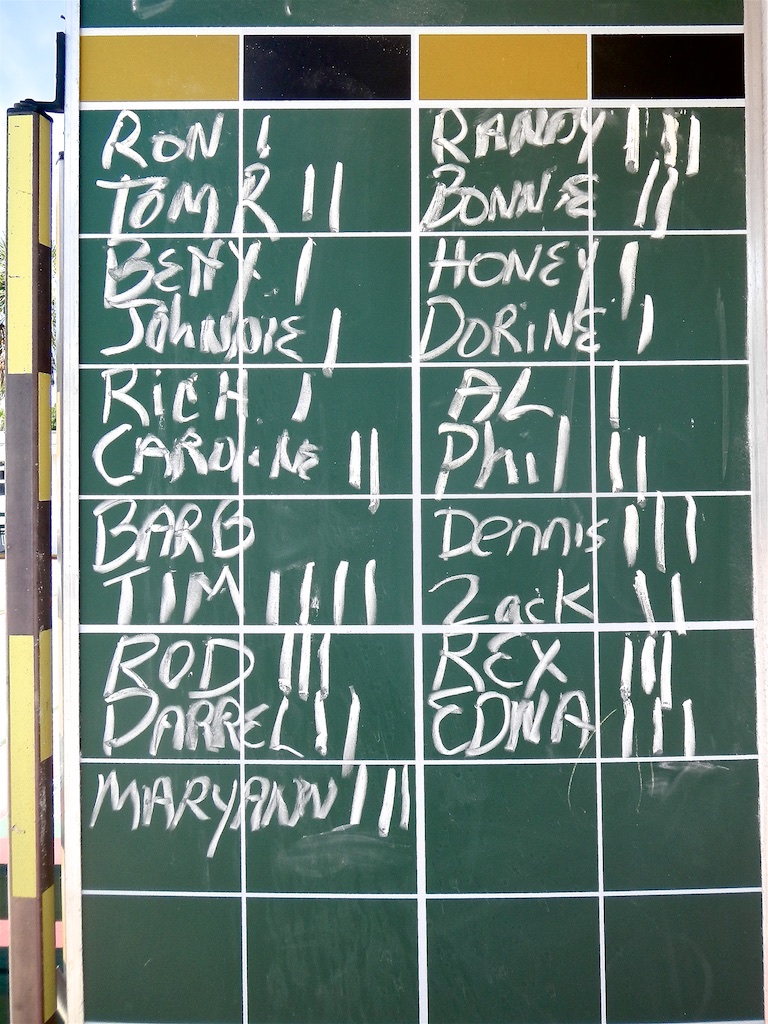 RON I
TOM R II
BETTY I
JOHNNIE I
RICH I
CAROLINE II
BARB
TIM IIII
ROD III
DARREL II
MARYANN III
RANDY III
BONNIE II
HONEY I
DORINE I
AL I
Phil II
Dennis III
Zack II
REX III
EDNA III